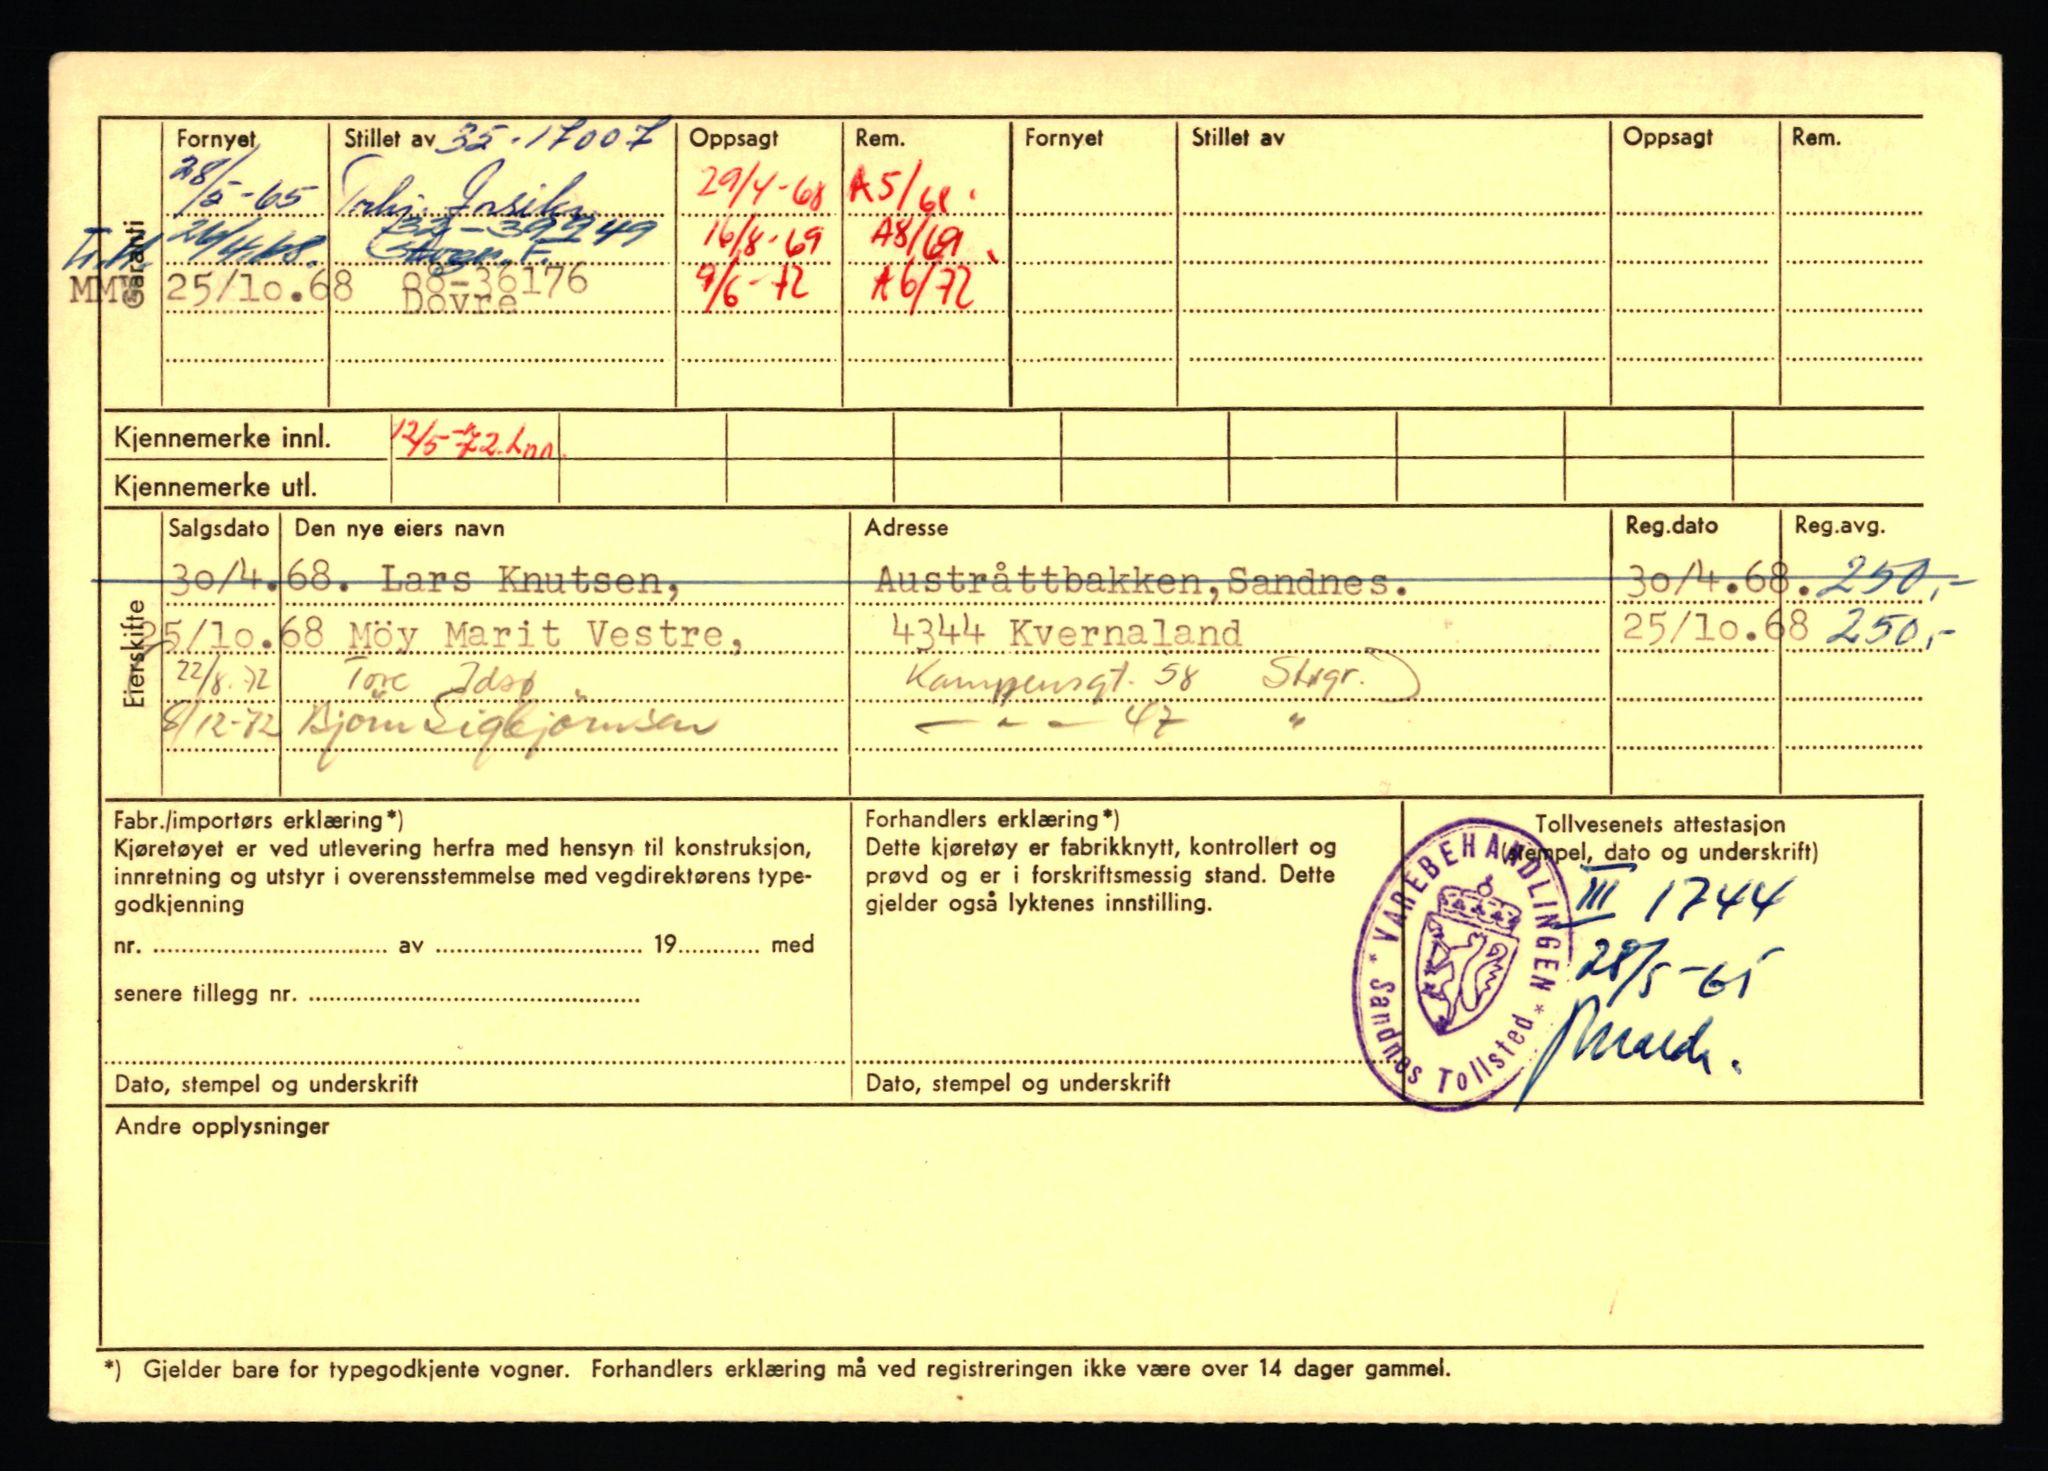 Garanti
Fornyet Stillet av 35-17007 Oppsagt Rem. Fornyet Stillet av Oppsagt Rem.
28/5-65 29/4-68 A5/68.
26/4.68. 32-39949 16/8-69 A8/69
25/10.68 08-36176 9/6-72 A6/72
Dovre
Kjennemerke innl. 12/5-72.
Kjennemerke utl.
Eierskifte
Salgsdato Den nye eiers navn Adresse Reg.dato Reg.avg.
30/4.68. Lars Knutsen, Austråttbakken,Sandnes. 30/4.68. 250,-
25/10.68 Möy Marit Vestre, 4344 Kvernaland 25/10.68 250,-
22/8.72 Tore Idsø Kampensgt. 58 Stvgr.
8/12-72 Bjørn Sigbjörnsen — " — 47 "
Fabr./importørs erklæring*)
Kjøretøyet er ved utlevering herfra med hensyn til konstruksjon,
innretning og utstyr i overensstemmelse med vegdirektørens type-
godkjenning
nr. av 19 med
senere tillegg nr.
Dato, stempel og underskrift
Forhandlers erklæring*)
Dette kjøretøy er fabrikknytt, kontrollert og
prøvd og er i forskriftsmessig stand. Dette
gjelder også lyktenes innstilling.
Dato, stempel og underskrift
Tollvesenets attestasjon
(stempel, dato og underskrift)
III 1744
28/5-65
* VAREBEHANDLINGEN *
Sandnes Tollsted
Andre opplysninger
*) Gjelder bare for typegodkjente vogner. Forhandlers erklæring må ved registreringen ikke være over 14 dager gammel.